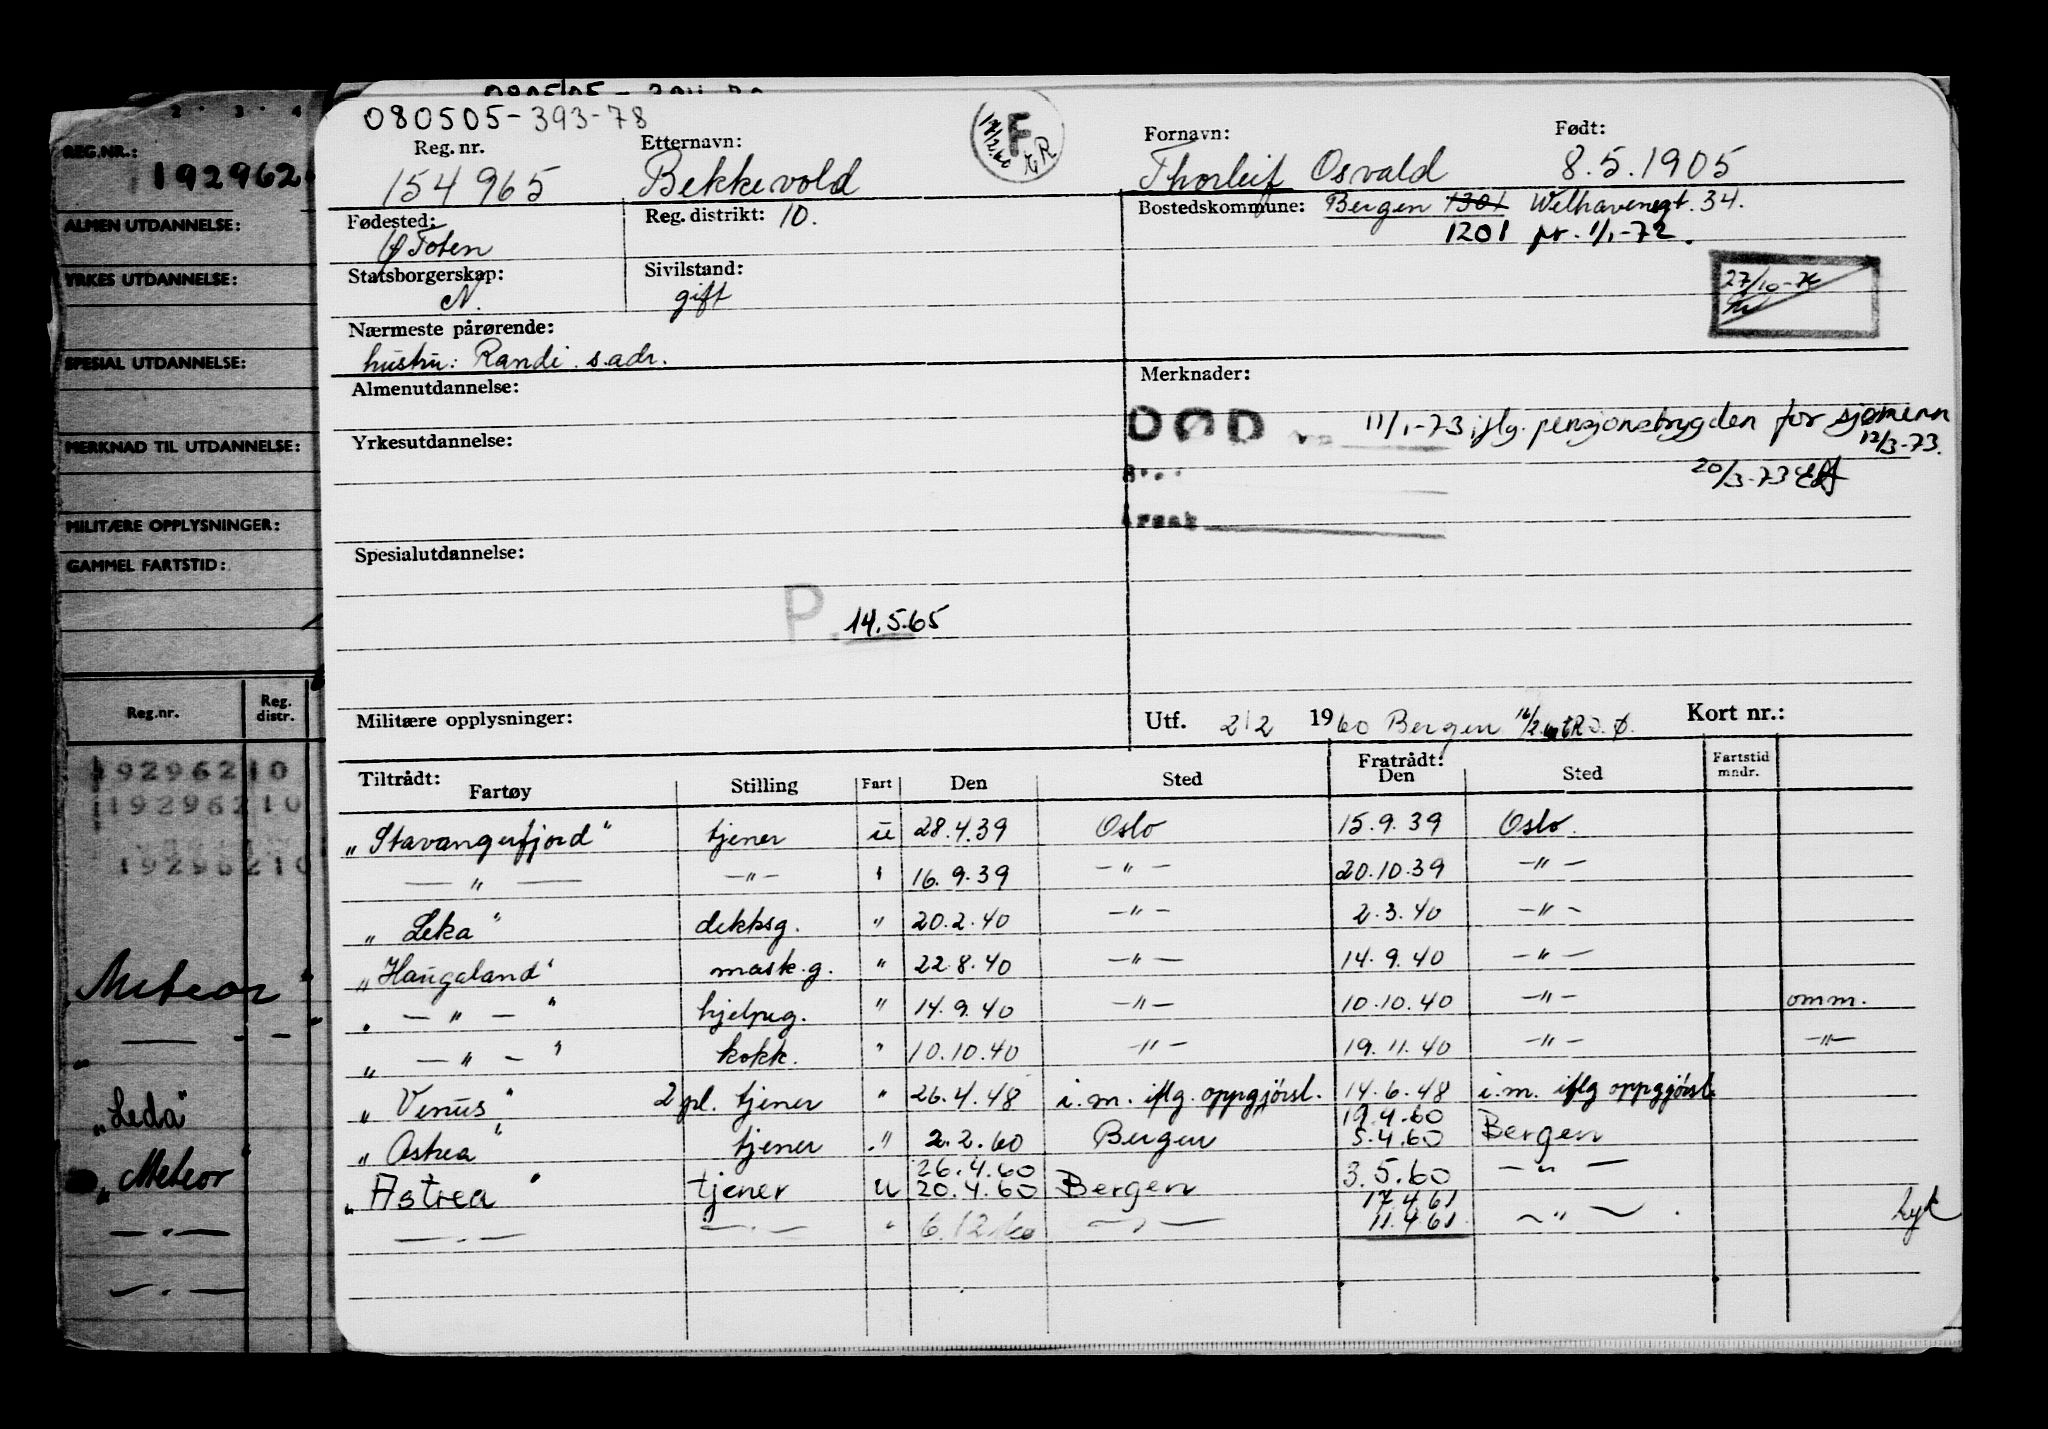 2 3 4
REG.NR.:
192962
ALMEN UTDANNELSE:
YRKES UTDANNELSE:
SPESIAL UTDANNELSE:
MERKNAD TIL UTDANNELSE:
MILITÆRE OPPLYSNINGER:
GAMMEL FARTSTID:
Reg.nr. Reg. distr.
19296210
19296210
19296210
Meteor "
— " —
"Leda"
"Meteor"
— " —
— " —
080505-393-78
Reg. nr. Etternavn: F Fornavn: Født:
154965 Bekkevold Thorleif Osvald 8.5.1905
Fødested: Reg. distrikt: 10. Bostedskommune: Bergen 1301 Welhavensgt. 34.
Toten 1201 pr. 1/1-72.
Statsborgerskap: Sivilstand:
N. gift
27/10-
Nærmeste pårørende:
hustru: Randi s.adr.
Almenutdannelse: Merknader:
DØD 11/1-73 iflg. pensjonstrygden for sjømenn
12/3-73.
Yrkesutdannelse:
20/3-73
Årsak
Spesialutdannelse:
P. 14.5.65
Militære opplysninger: Utf. 2/2 1960 Bergen Kort nr.:
Tiltrådt: Fratrådt:
Fartøy Stilling Fart Den Sted Den Sted Fartstid mndr.
"Stavangerfjord" tjener u 28.4.39 Oslo 15.9.39 Oslo.
— " — — " — " 16.9.39 — " — 20.10.39 — " —
"Leka" dekksg. " 20.2.40 — " — 2.3.40 — " —
"Haugaland" mask.g. " 22.8.40 — " — 14.9.40 — " —
" — " — " hjelpeg. " 14.9.40 — " — 10.10.40 — " — omm.
" — " — " kokk. " 10.10.40 — " — 19.11.40 — " — — " —
"Venus" 2 pl. tjener " 26.4.48 i.m. iflg. oppgjørsl. 14.6.48 i.m. iflg oppgjørsl.
19.4.60
"Astrea" tjener " 2.2.60 Bergen 5.4.60 Bergen
26.4.60
"Astrea" tjener u 20.4.60 Bergen 3.5.60 — " —
17.4.61
— " — — " — " 6.12.60 — " — 11.4.61 — " —